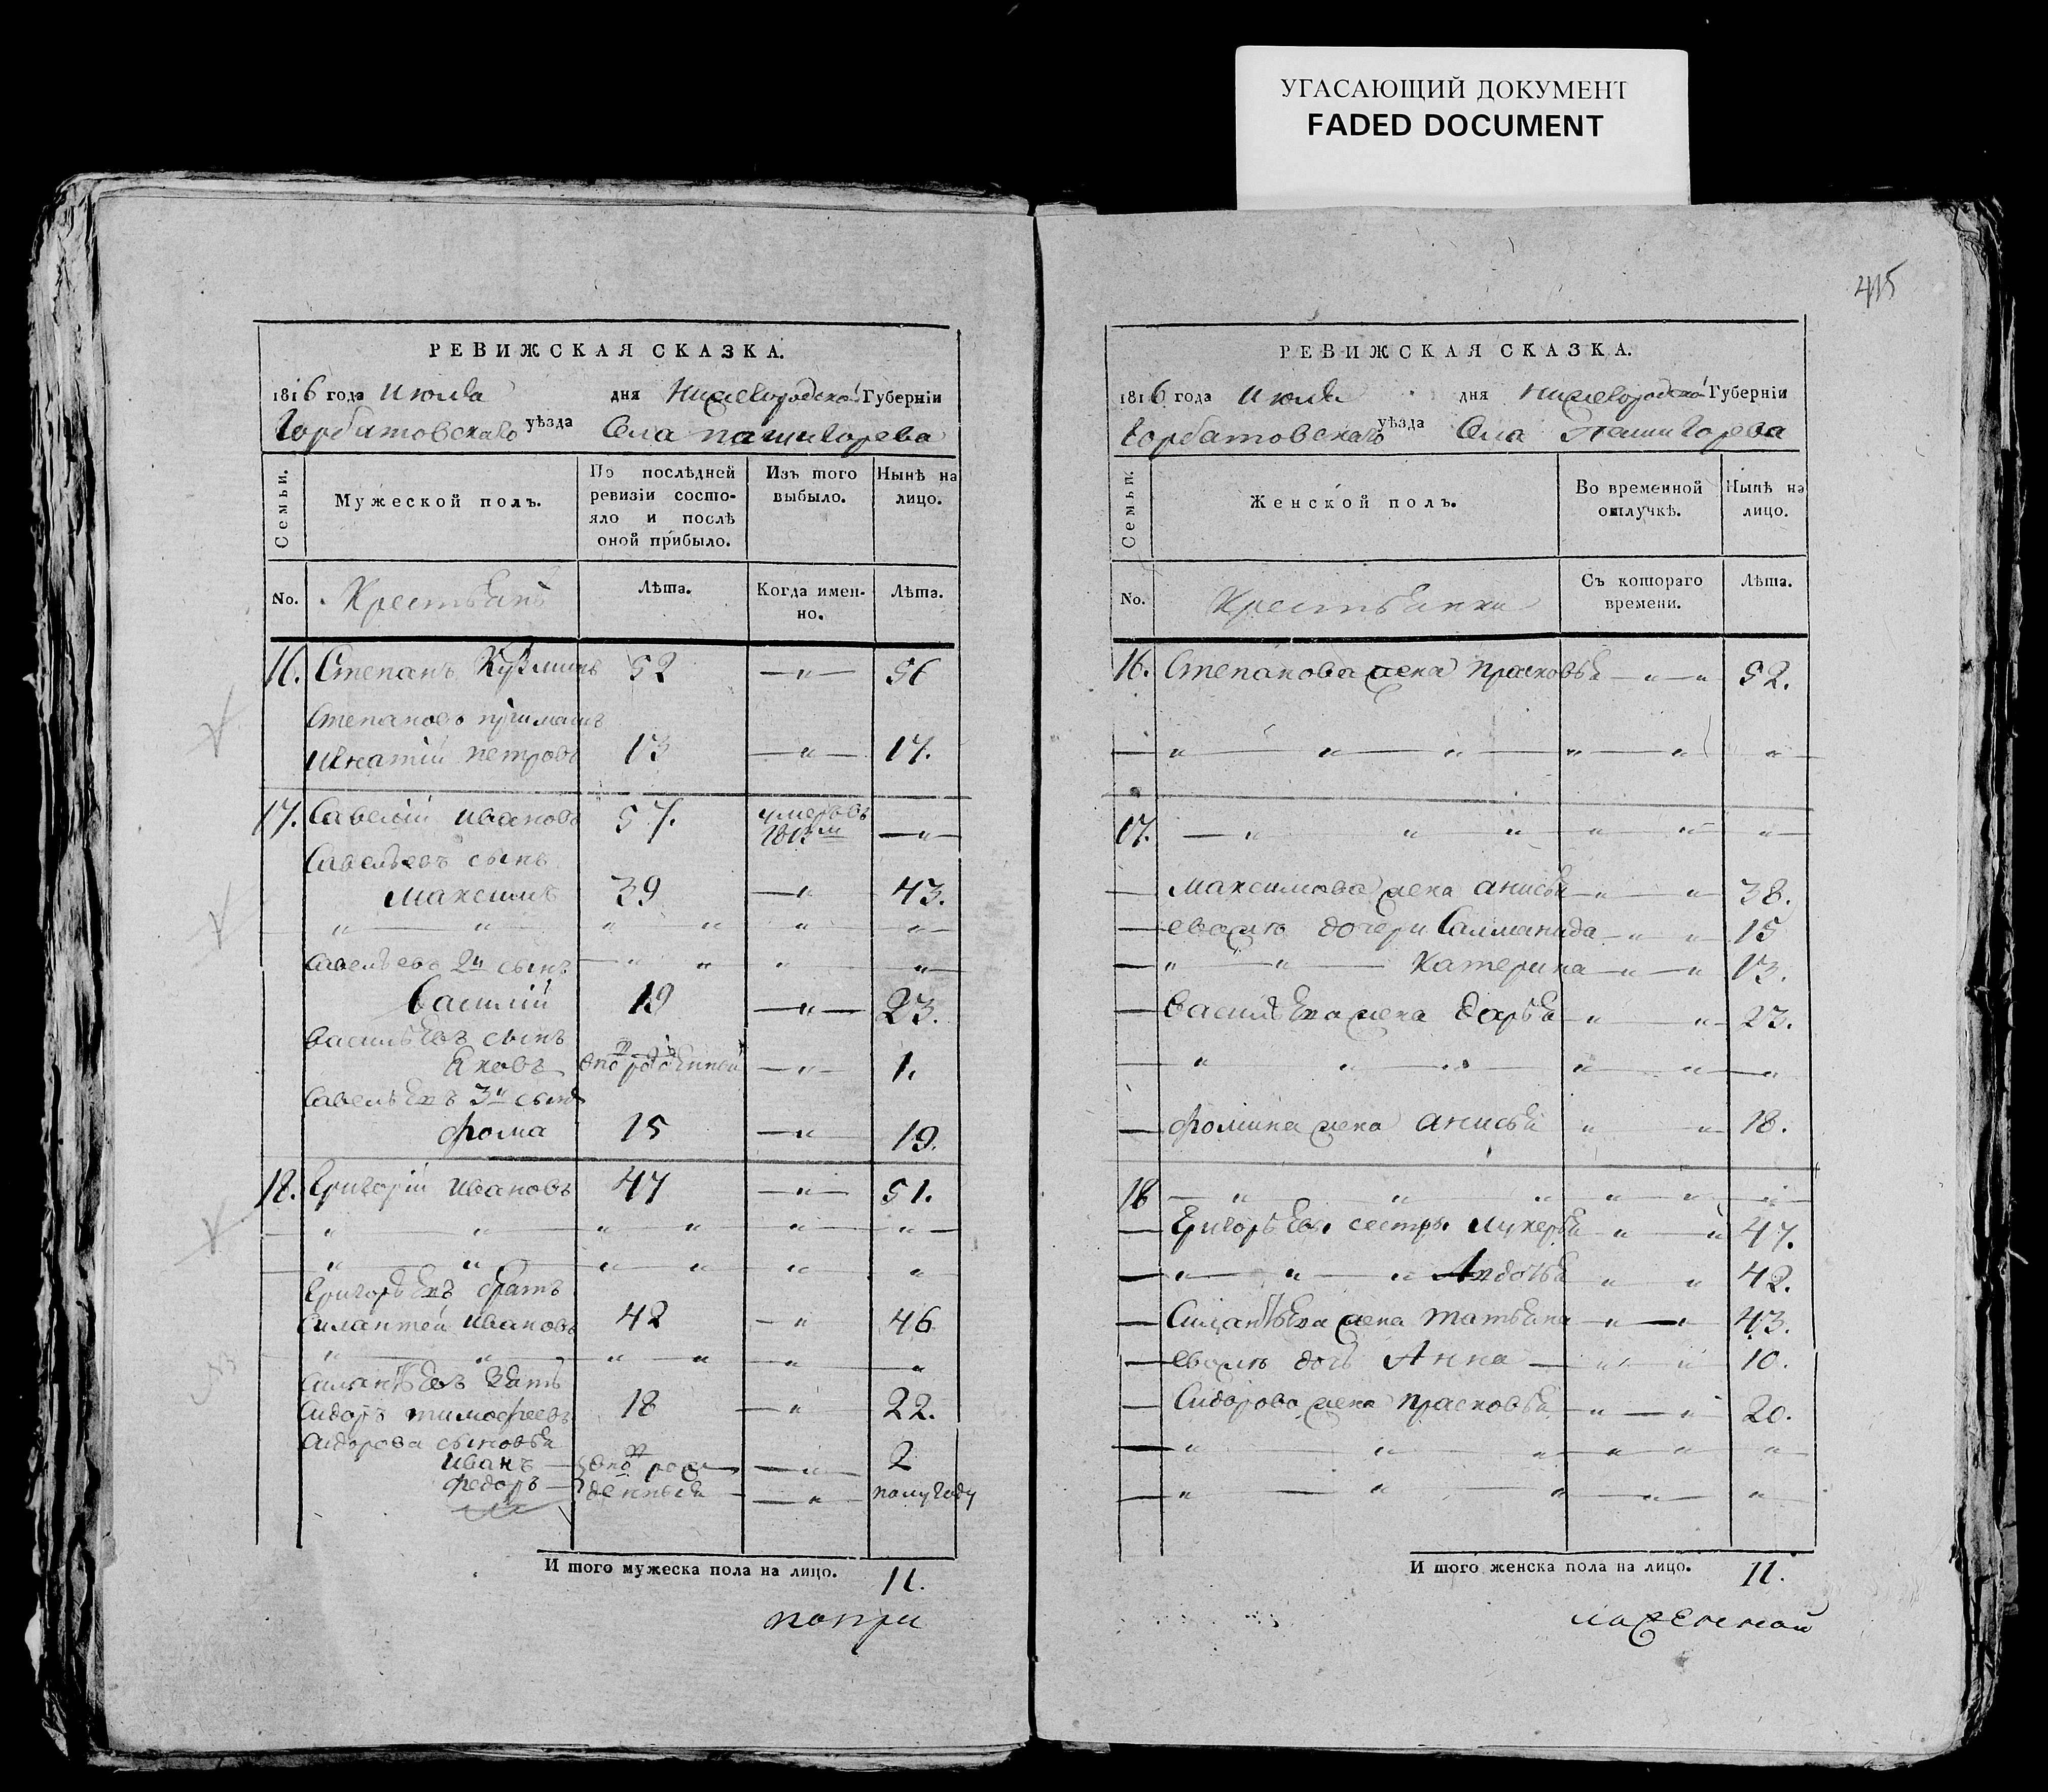 УГАСАЮЩИЙ ДОКУМЕНТ
FADED DOCUMENT
РЕВИЖСКАЯ СКАЗКА.
1816 года Июля дня Нижегородской Губернiи
Горбатовскаго уѣзда Села пашигорева
Семьи.
Мужеской полъ.
По послѣдней ревизiи состо-
яло и послѣ
оной прибыло.
Изъ того
выбыло.
Нынѣ на
лицо.
No. Крестьянъ Лѣта. Когда имен-
но. Лѣта.
16. Степанъ Кузминъ 52 — „ — 56
Степановъ
Игнатiй петровъ 13 — „ — 17.
17. Савелiй ивановъ 57. умеръ въ
1813м — „ —
Савельевъ сынъ
максимъ 39 — „ — 43.
„ — „ — „ „ „ „
Савельевъ 2й сынъ — „ „ „ „
Василiй 19 — „ — 23.
васильевъ сынъ
Яковъ вновь рожденный — „ — 1.
Савельевъ 3й сынъ
фома 15 — „ — 19.
18. Григорiй ивановъ 47 — „ — 51.
„ — „ — „ — „ — „ — „ —
„ — „ — „ — „ „ „
Григорьевъ братъ
Силантей ивановъ 42 — „ 46
„ — „ — „ — „ — „ — „
Силантьевъ зять
Сидоръ тимофеевъ 18 — „ — 22.
Сидорова сыновья
иванъ — вновь рож — „ — 2
федоръ — денныя — „ — полугоду
И того мужеска пола на лицо. 11.
попри
415
РЕВИЖСКАЯ СКАЗКА.
1816 года Июля дня Нижегородской Губернiи
Горбатовскаго уѣзда Села Пашигорева
Семьи.
Женской полъ.
Во временной
отлучкѣ.
Нынѣ на
лицо.
No. Крестьянки Съ котораго
времени. Лѣта.
16. Степанова жена прасковья — „ — „ 52.
— „ — „ — „ — „ — „ „
17. — „ „ „ „ — „ — „ —
— максимова жена анисья — „ „ 38.
— евожъ дочери Салманида — „ „ 15
— „ — „ — катерина — „ — „ 13.
— васильева жена дарья — „ — „ — 23.
„ „ „ „ „ — „
— фомина жена анисья „ — „ — 18.
18 — „ „ „ „ — „ — „ —
— Григорьевы сестры лукерья „ — „ 47.
— „ — „ — „ Авдотья „ „ 42.
— Силантьева жена татьяна „ — „ 43.
— евожъ дочь Анна — „ „ 10.
— Сидорова жена прасковья — „ — „ 20.
— „ „ „ — „ — „ „
— „ — „ — „ — „ — „ — „
И того женска пола на лицо. 11.
ложенной